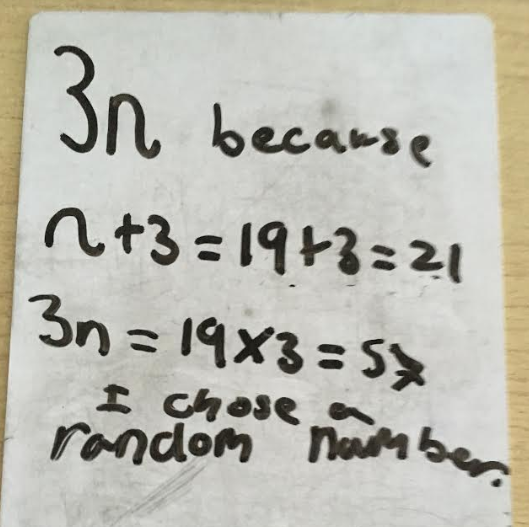 3n because
n+3=19+3=21
3n=19×3=57
I chose a
random number.